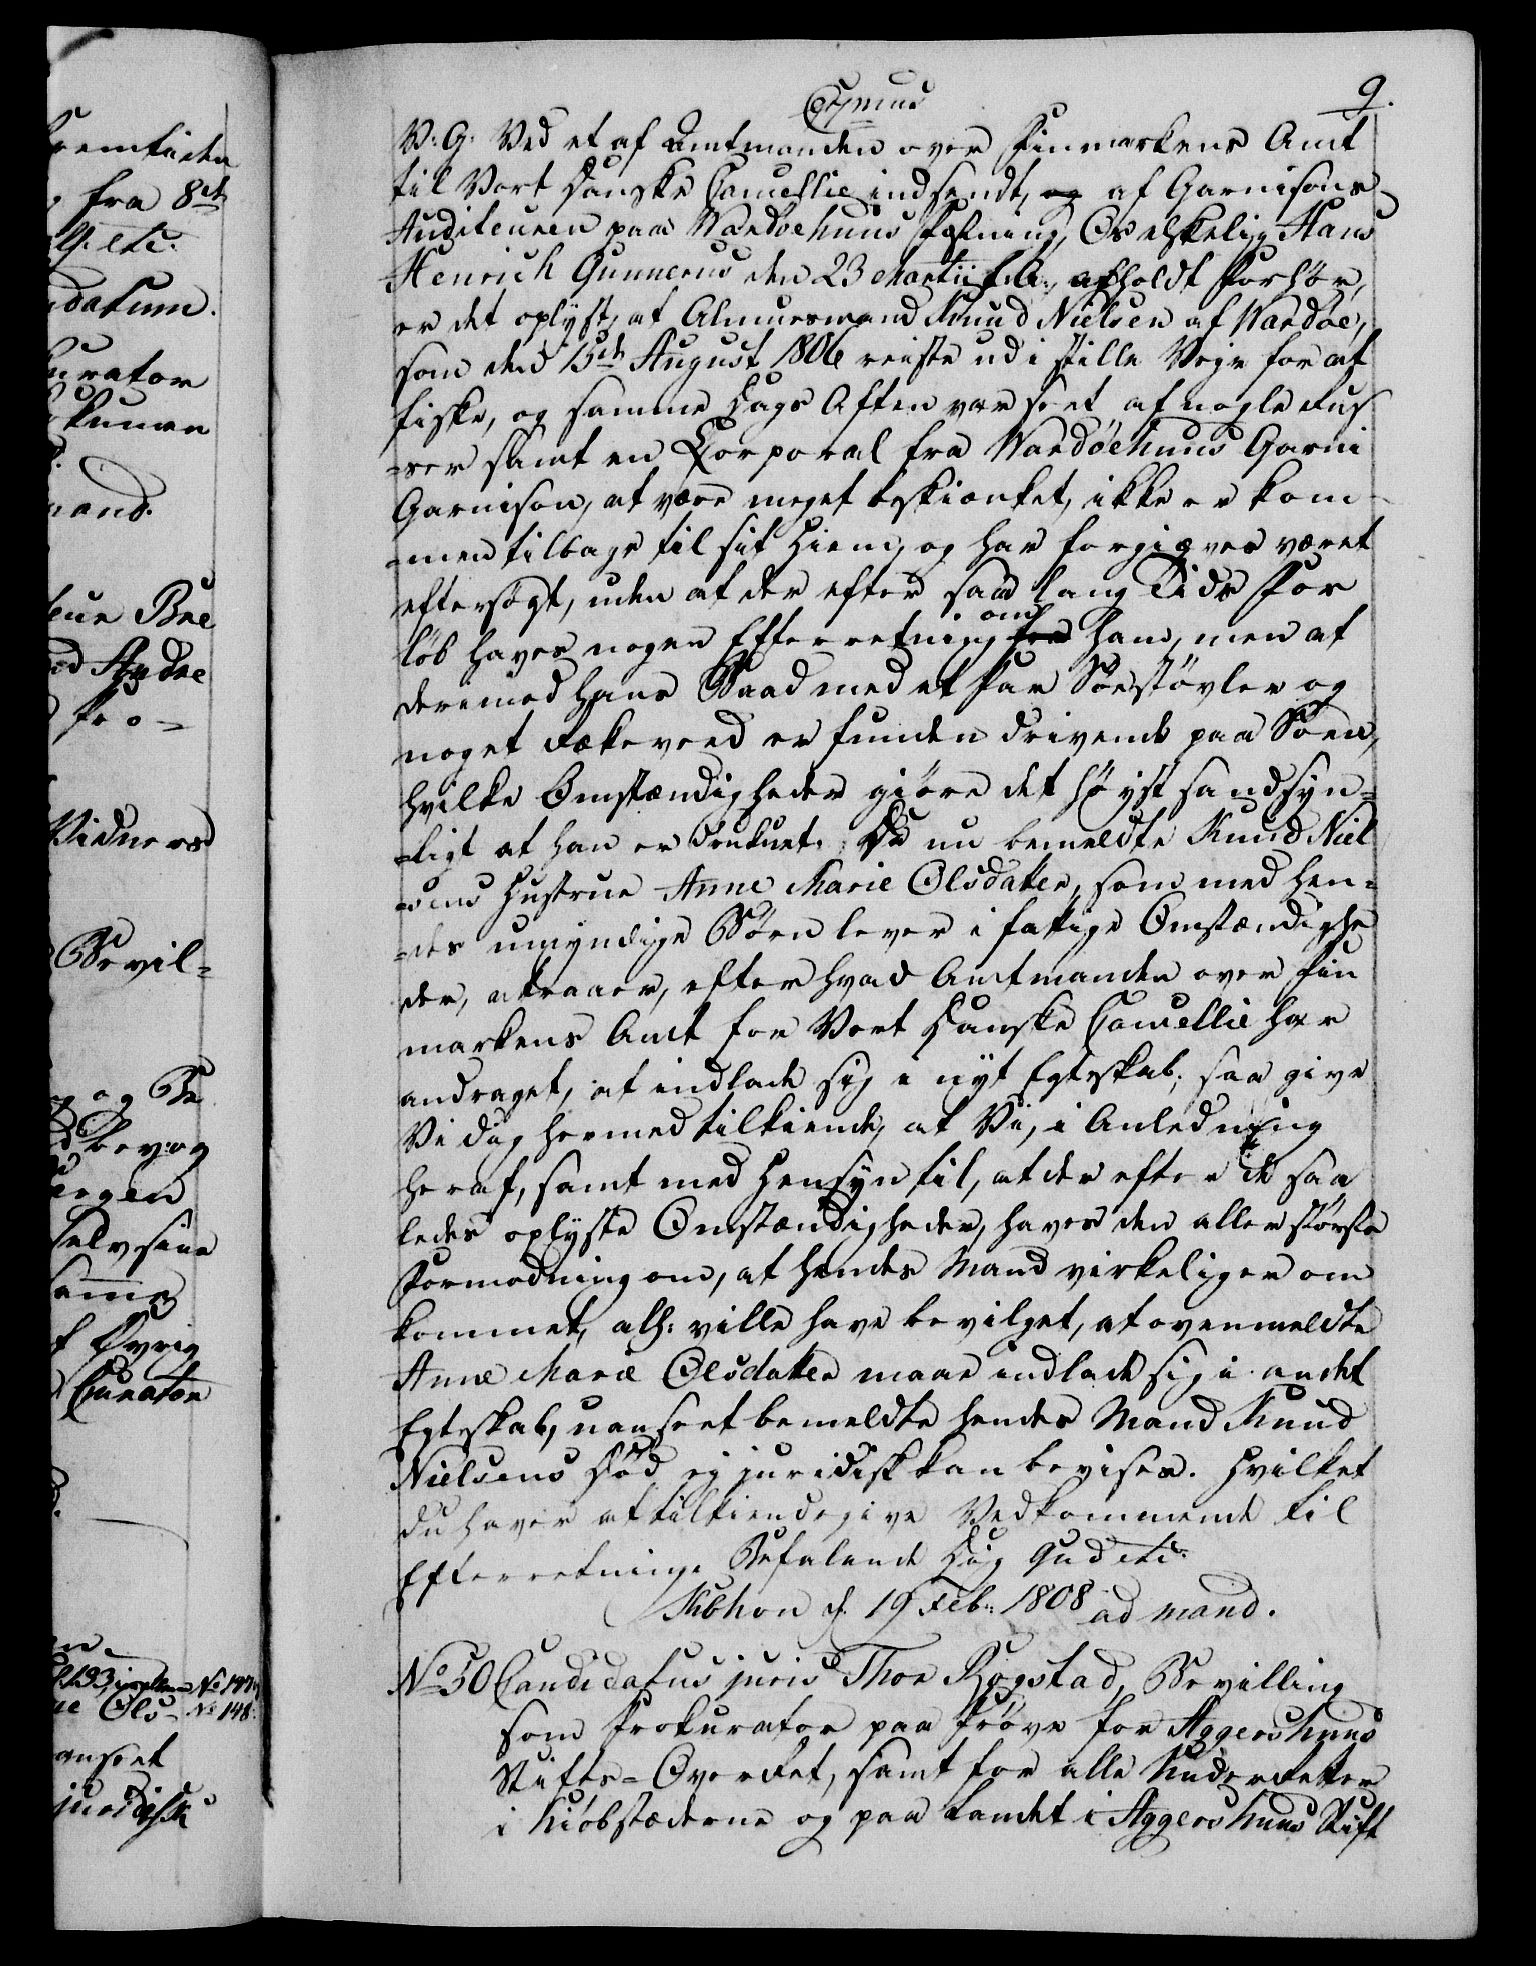 9.
V: G: Ved et af Amtmanden over Finmarkens Amt
til Vort Danske Cancellie indsendt, og af Garnisons
Auditeuren paa Wardøehuus Fæstning, Os elskelig Hans
Henrich Gunnerus den 23 Martii f. A., afholdt Forhör,
er det oplyst, at Almuesmand Knud Nielsen af Wardöe,
som den 15de August 1806 reiste ud i stille Veir for at
fiske, og samme Dags Aften var seet af nogle Rus
-ser samt en Corporal fra Wardöehuus Garni
Garnison, at være meget beskiænket, ikke er kom-
-men tilbage til sit Hiem, og har forgiæves været
eftersögt, uden at der efter saa lang Tids For
löb haves nogen Efterretning om
fra ham, men at
derimod hans Baad med et Par Söestövler og
noget Rækeveed er funden drivende paa Söen,
hvilke Omstændigheder giöre det höyst sandsyn=
-ligt at han er druknet. Da nu bemeldte Knud Niel
-sens Hustrue Anne Marie Olsdatter, som med hen=
-des umyndige Börn lever i fattige Omstændighe
der, attraaer, efter hvad Amtmanden over Fin
markens Amt for Vort Danske Cancellie har
andraget, at indlade sig i nyt Egteskab; saa give
Vi dig hermed tilkiende, at Vi, i Anledning
heraf, samt med Hensyn til, at der efter de saa
ledes oplyste Omstændigheder, haves den allerstörste
Formodning om, at hendes Mand virkelig er om
kommet, allg: ville have bevilget, at ovenmeldte
Anne Marie Olsdatter maae indlade sig i andet
Egteskab, uanseet bemeldte hendes Mand Knud
Nielsens Död ej juridisk kan bevises. Hvilket
du haver at tilkiendegive Vedkommende til
Efterretning. Befalende Dig Gud etc.
Kbhvn d. 19 Feb: 1808 ad mand.
No 50 Candidatus juris Thor Rogstad, Bevilling
som Prokurator paa Pröve for Aggershuus
Stifts=Overret, samt for alle Underretter
i Kiöbstæderne og paa Landet i Aggershuus Stift